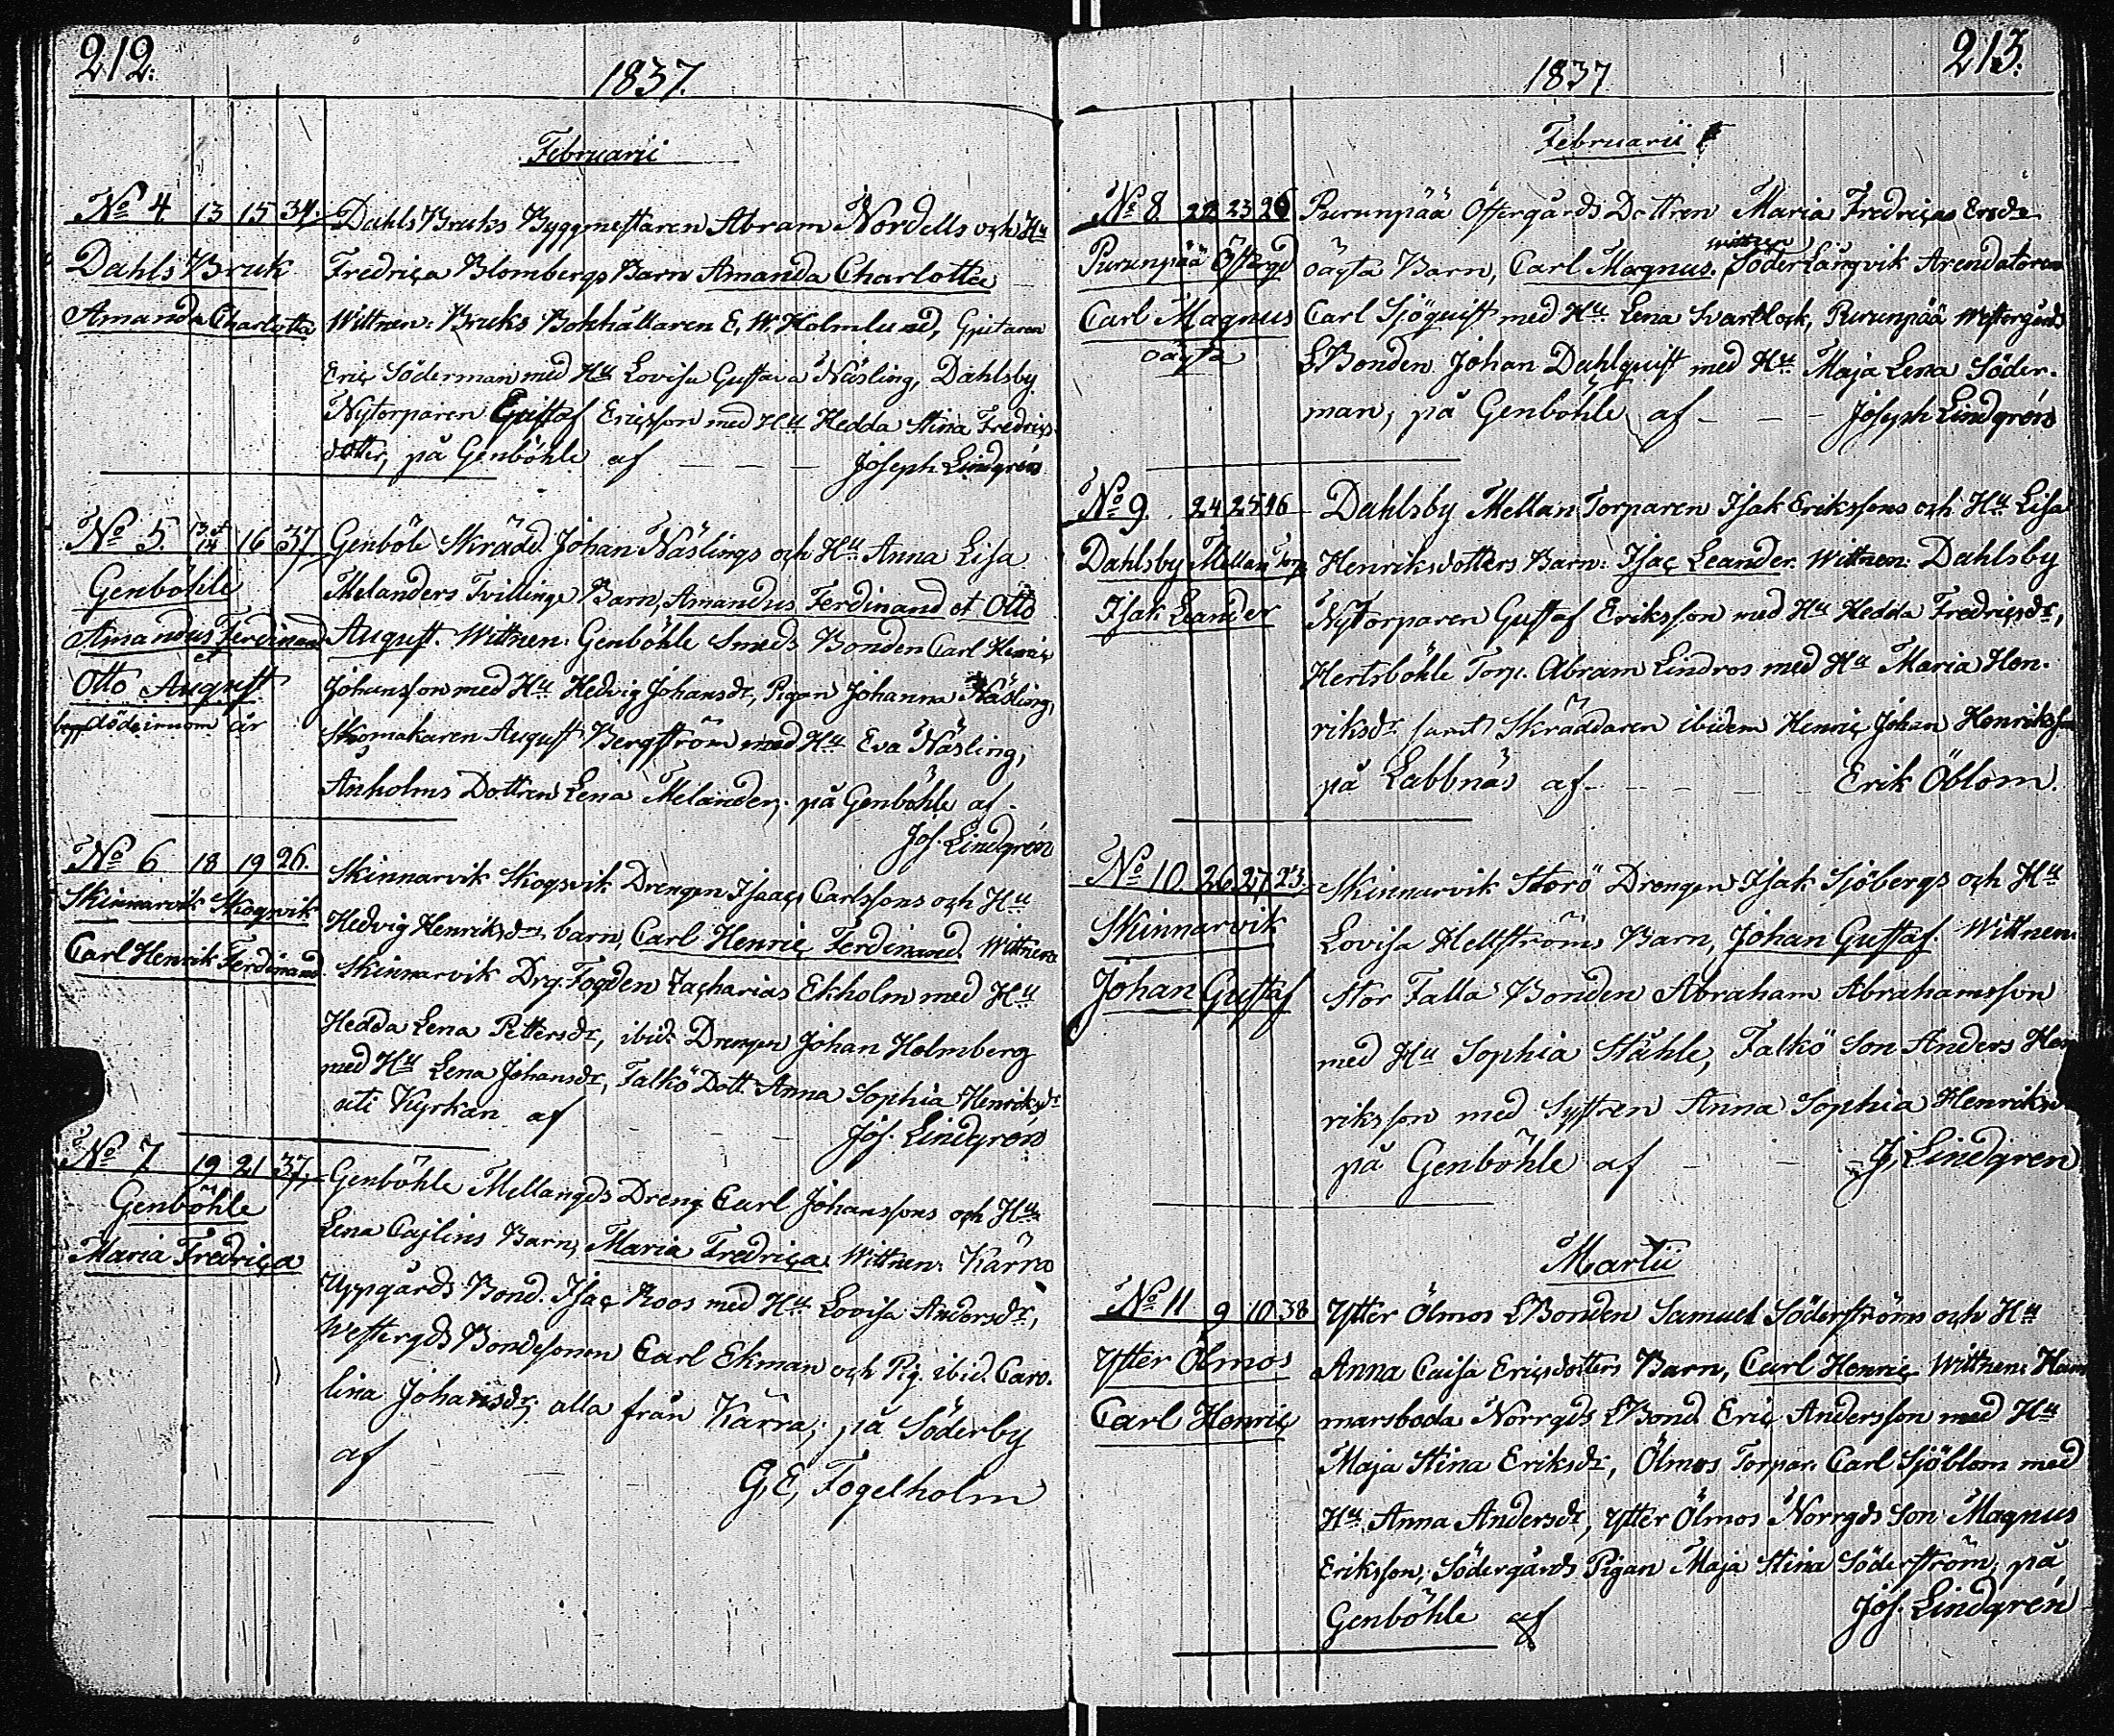 212.
1837.
Februarii
No 4 13 15 34.
Dahls Bruk
Amanda Charlotta
Dahls Bruks Byggmestaren Abram Nordells och Hu
Fredrica Blombergs Barn Amanda Charlotta
Wittnen: Bruks Bokhållaren E. W. Holmlund,
Eric Söderman med Hu Lovisa Gustava Näsling, Dahlsby
Nytorparen Gustaf Ericsson med Hu Hedda Stina Fredrics
dotter, på Genböhle af - - - Joseph Lindgrén
No 5. 13 et 14 16 37
Genböhle
Amandus Ferdinand
et
Otto August
döde innom år
Genböle Skrädd. Johan Näslings och Hu Anna Lisa
Melanders Tvillinge Barn, Amandus Ferdinand et Otto
August. Wittnen. Genböhle Smeds Bonden Carl Henric
Johansson med Hu Hedvig Johansdr, Pigan Johanna Näsling,
Skomakaren August Bergström med Hu Eva Näsling,
Anholms Dottren Lena Melander; på Genböhle af.
Jos. Lindgrén
No 6. 18 19 26.
Skinnarvik Skogsvik
Carl Henrik Ferdinand
Skinnarvik Skogsvik Drengen Isaac Carlssons och Hu
Hedvig Henriksdrs barn, Carl Henric Ferdinand. Wittnen
Skinnarvik Drg. Fogden Zacharias Ekholm med Hu
Hedda Lena Pettersdr, ibid. Drengen Johan Holmberg
med Hu Lena Johansdr, Falkö Dott. Anna Sophia Henriksdr
uti Kyrkan af - - - Jos. Lindgrén
No 7 19 21 37.
Genböhle
Maria Fredrica
Genböhle Mellangds Dreng Carl Johanssons och Hu
Lena Cajlins Barn, Maria Fredrica. Wittnen. Kärra
Uppgårds Bond. Isac Roos med Hu Lovisa Andersdr,
Westergds Bondesonen Carl Ekman och Pig. ibid. Caro-
lina Johansdr; alla från Kärra; på Söderby
af
G. E. Fogelholm
213.
1837
Februarii
No 8 22 23 26
Purunpää Östergd
Carl Magnus
oägta
Purunpää Östergårds Dottren Maria Fredricas Ersdr
wittnen
oägta Barn, Carl Magnus. Söder Långvik Arendatoren
Carl Sjöquist med Hu Lena Svartlock, Purunpää Westergårds
LBonden Johan Dahlquist med Hu Maja Lena Söder-
man, på Genböhle af - - - Joseph Lindgrén
No 9. 24 25 26
Dahlsby Mellan Torp
Isak Leander
Dahlsby Mellan Torparen Isak Erikssons och Hu Lisa
Henriksdotters Barn: Isac Leander. Wittnen: Dahlsby
NyTorparen Gustaf Eriksson med Hu Hedda Fredricsdr,
Hertsböhle Torp. Abram Lindros med Hu Maria Hen-
riksdr samt Skräddaren ibidem Henric Johan Henriksson
på Labbnäs af - - - Erik Öblom.
No 10. 26 27 23.
Skinnarvik
Johan Gustaf
Skinnarvik Storö Drengen Isak Sjöbergs och Hu
Lovisa Hellströms Barn, Johan Gustaf. Wittnen.
Stor Falla Bonden Abraham Abrahamsson
med Hu Sophia Ståhle, Falkö Son Anders Hen
riksson med Systren Anna Sophia Henriksdr
på Genböhle af - - - J. Lindgren
Martii
No 11 9 10 38
Ytter Ölmos
Carl Henric
Ytter Ölmos LBonden Samuel Söderströms och Hu
Anna Caisa Ericsdotters Barn, Carl Henric. Wittnen: Ham
marsboda Norrgds LBond. Eric Andersson med Hu
Maja Stina Eriksdr, Ölmos Torpar. Carl Sjöblom med
Hu. Anna Andersdr, Ytter Ölmos Norrgds Son Magnus
Eriksson, Södergårds Pigan Maja Stina Söderström; på
Genböhle af Jos. Lindgrén